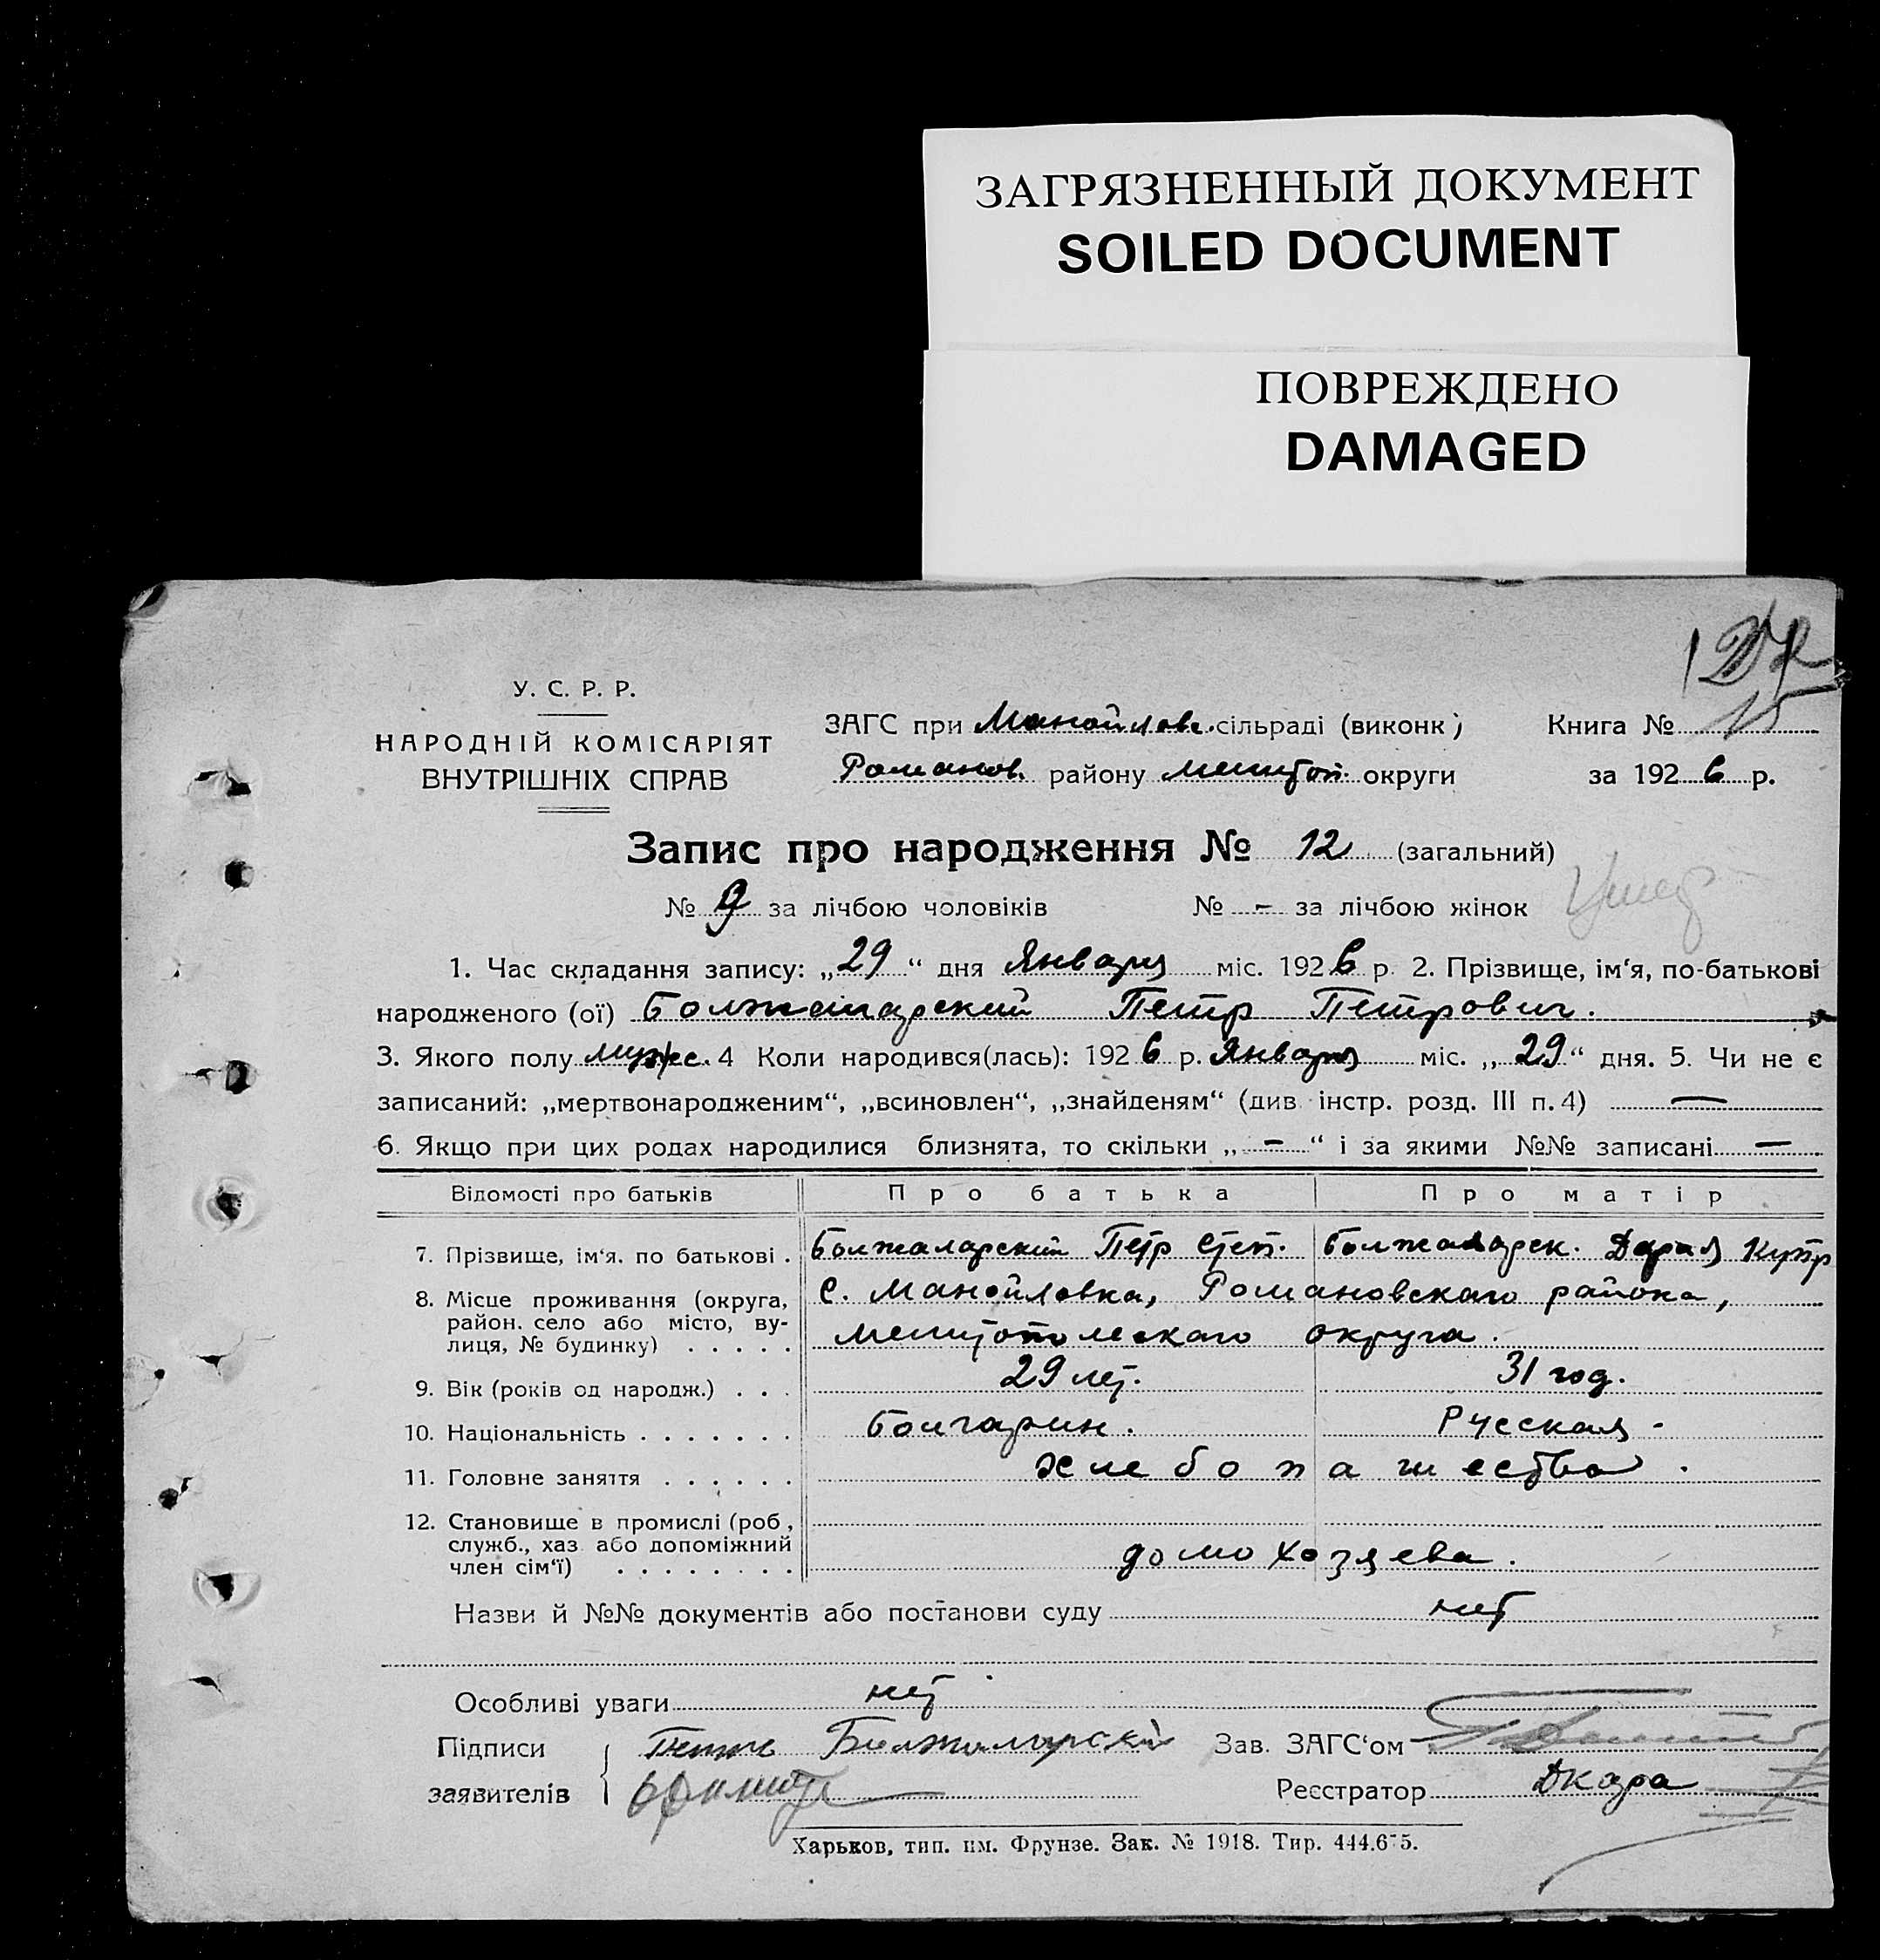 ЗАГРЯЗНЕННЫЙ ДОКУМЕНТ
SOILED DOCUMENT
ПОВРЕЖДЕНО
DAMAGED
У. С. Р. Р.
НАРОДНІЙ КОМІСАРІЯТ
ВНУТРІШНІХ СПРАВ
ЗАГС при Манойлов. сільраді (виконк)
Романов. району Мелитоп. округи
Книга № 15
за 1926 р.
Запис про народження № 12 (загальний)
№ 9 за лічбою чоловіків № - за лічбою жінок
1. Час складання запису: „29“ дня Января міс. 1926 р. 2. Прізвище, ім'я, по-батькові
народженого (ої) Болжаларский Петр Петрович.
3. Якого полу мужс. 4 Коли народився(лась): 1926 р. Января міс. „29“ дня. 5. Чи не є
записаний: „мертвонародженим“, „всиновлен“, „знайденям“ (див. інстр. розд. III п. 4) —
6. Якщо при цих родах народилися близнята, то скільки „-“ і за якими №№ записані —
Відомості про батьків Про батька Про матір
7. Прізвище, ім'я. по батькові . Болжаларский Петр Степ. Болжаларск. Дария Купр
8. Місце проживання (округа, район. село або місто, вулиця, № будинку) . . . . . С. Манойловка, Романовскаго района,
Мелитопольскаго округа.
9. Вік (років од народж.) . . . 29 лет. 31 год.
10. Національність . . . . . . . Болгарин. Русская -
11. Головне заняття . . . . . . Хлебопашества.
12. Становище в промислі (роб,
служб., хаз або допоміжний
член сім'ї) . . . . . . . . домохозяева.
Назви й №№ документів або постанови суду нет
Особливі уваги нет
Підписи Петр Болжаларский Зав. ЗАГС'ом
заявителів Реєстратор ДКара
Харьков, тип. им. Фрунзе. Зак. № 1918. Тир. 444.675.